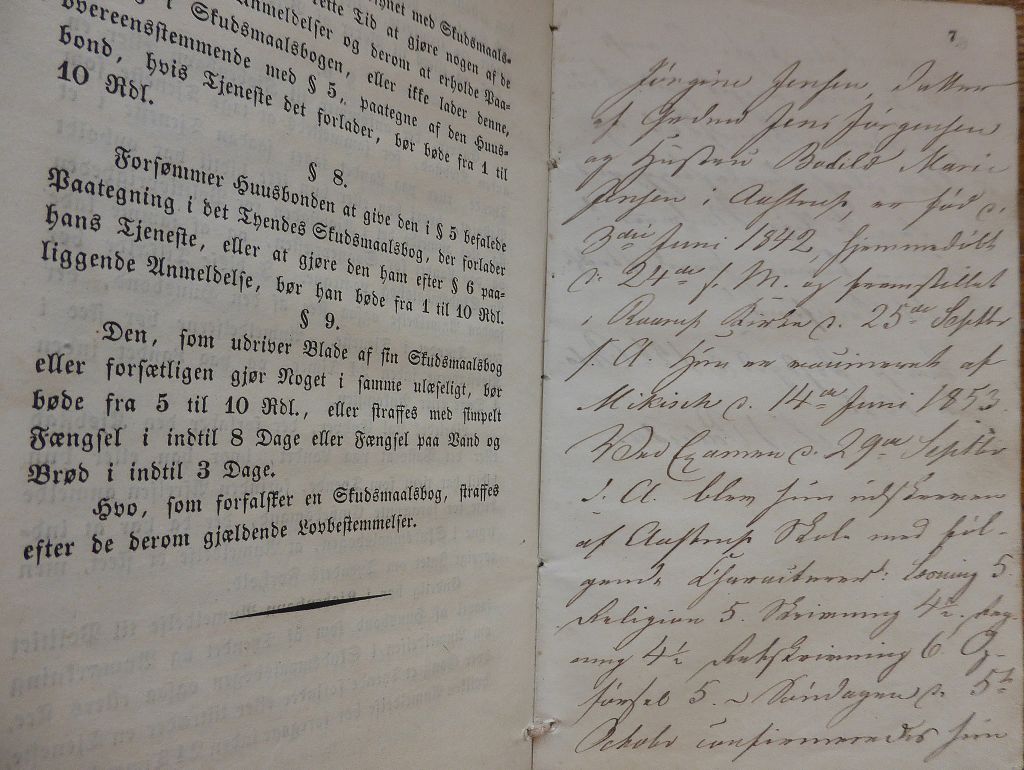 synet med Skudsmaals-
rette Tid at gjøre nogen af de
Anmeldelser og derom at erholde Paa-
i Skudsmaalsbogen, eller ikke lader denne,
overeensstemmende med § 5, paategne af den Huus-
bond, hvis Tjeneste det forlader, bør bøde fra 1 til
10 Rdl.
§ 8.
Forsømmer Huusbonden at give den i § 5 befalede
Paategning i det Tyendes Skudsmaalsbog, der forlader
hans Tjeneste, eller at gjøre den ham efter § 6 paa-
liggende Anmeldelse, bør han bøde fra 1 til 10 Rdl.
§ 9.
Den, som udriver Blade af sin Skudsmaalsbog
eller forsætligen gjør Noget i samme ulæseligt, bør
bøde fra 5 til 10 Rdl., eller straffes med simpelt
Fængsel i indtil 8 Dage eller Fængsel paa Vand og
Brød i indtil 3 Dage.
Hvo, som forfalsker en Skudsmaalsbog, straffes
efter de derom gjældende Lovbestemmelser.
7
Jørgine Jensen, Datter
af Grdmd Jens Jørgensen
og Hustru Bodild Marie
Jensen i Aastrup, er født d.
3die Juni 1842, hjemmedøbt
d. 24de s. M. og fremstillet
i Raarup Kirke d. 25de Septbr
s. A. Hun er vaccineret af
Mikisch d. 14de Juni 1853.
Ved Examen d. 29de Septbr
s. A. blev hun udskreven
af Aastrup Skole med føl-
gende Characterer: Læsning 5.
Religion 5. Skrivning 4½. Reg-
ning 4½ Retskrivning 6. Op-
førsel 5. Søndagen d. 5te
Octobr confirmeredes hun